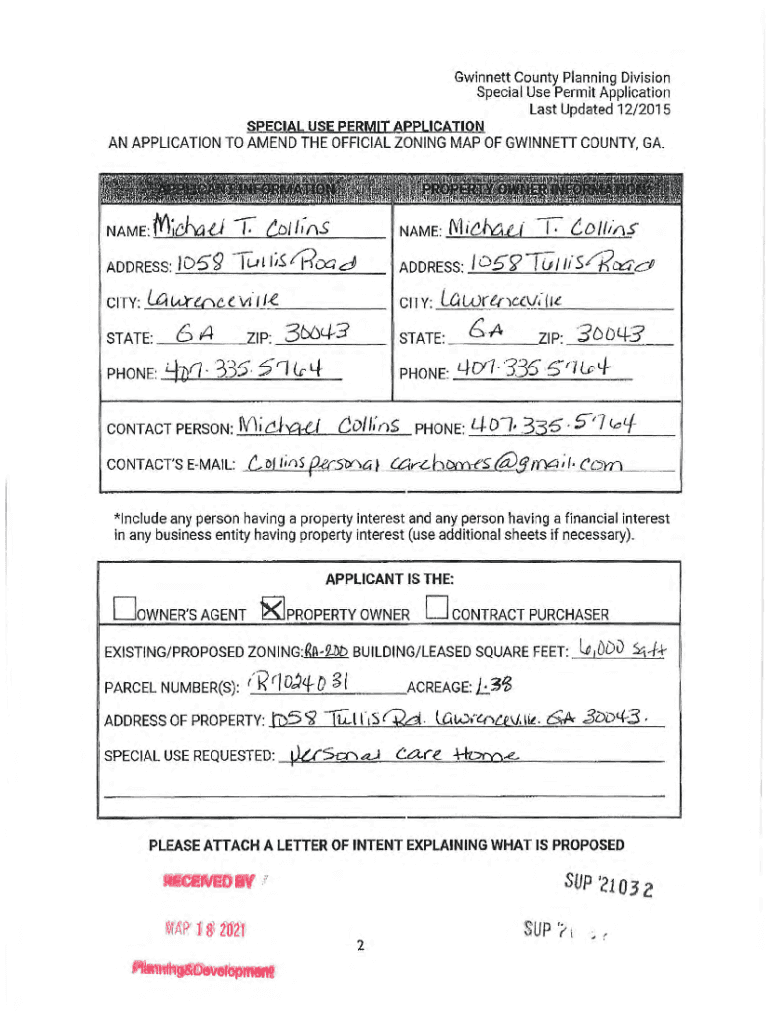 Gwinnett County Planning Division
Special Use Permit Application
Last Updated 12/2015
SPECIAL USE PERMIT APPLICATION
AN APPLICATION TO AMEND THE OFFICIAL ZONING MAP OF GWINNETT COUNTY, GA.
APPLICANT INFORMATION PROPERTY OWNER INFORMATION*
NAME: Michael T. Collins NAME: Michael T. Collins
ADDRESS: 1058 Tullis Road ADDRESS: 1058 Tullis Road
CITY: Lawrenceville CITY: Lawrenceville
STATE: GA ZIP: 30043 STATE: GA ZIP: 30043
PHONE: 407.335.5764 PHONE: 407.335 5764
CONTACT PERSON: Michael Collins PHONE: 407.335.5764
CONTACT'S E-MAIL: Collinspersonal carehomes@gmail.com
*Include any person having a property interest and any person having a financial interest
in any business entity having property interest (use additional sheets if necessary).
APPLICANT IS THE:
OWNER'S AGENT X PROPERTY OWNER CONTRACT PURCHASER
EXISTING/PROPOSED ZONING: RA-200 BUILDING/LEASED SQUARE FEET: 6,000 Sq.ft
PARCEL NUMBER(S): R7024 031 ACREAGE: 1.38
ADDRESS OF PROPERTY: 1058 Tullis Rd. Lawrenceville. GA 30043.
SPECIAL USE REQUESTED: Personal Care Home
PLEASE ATTACH A LETTER OF INTENT EXPLAINING WHAT IS PROPOSED
RECEIVED BY SUP '21032
MAR 18 2021 SUP '21
2
Planning&Development